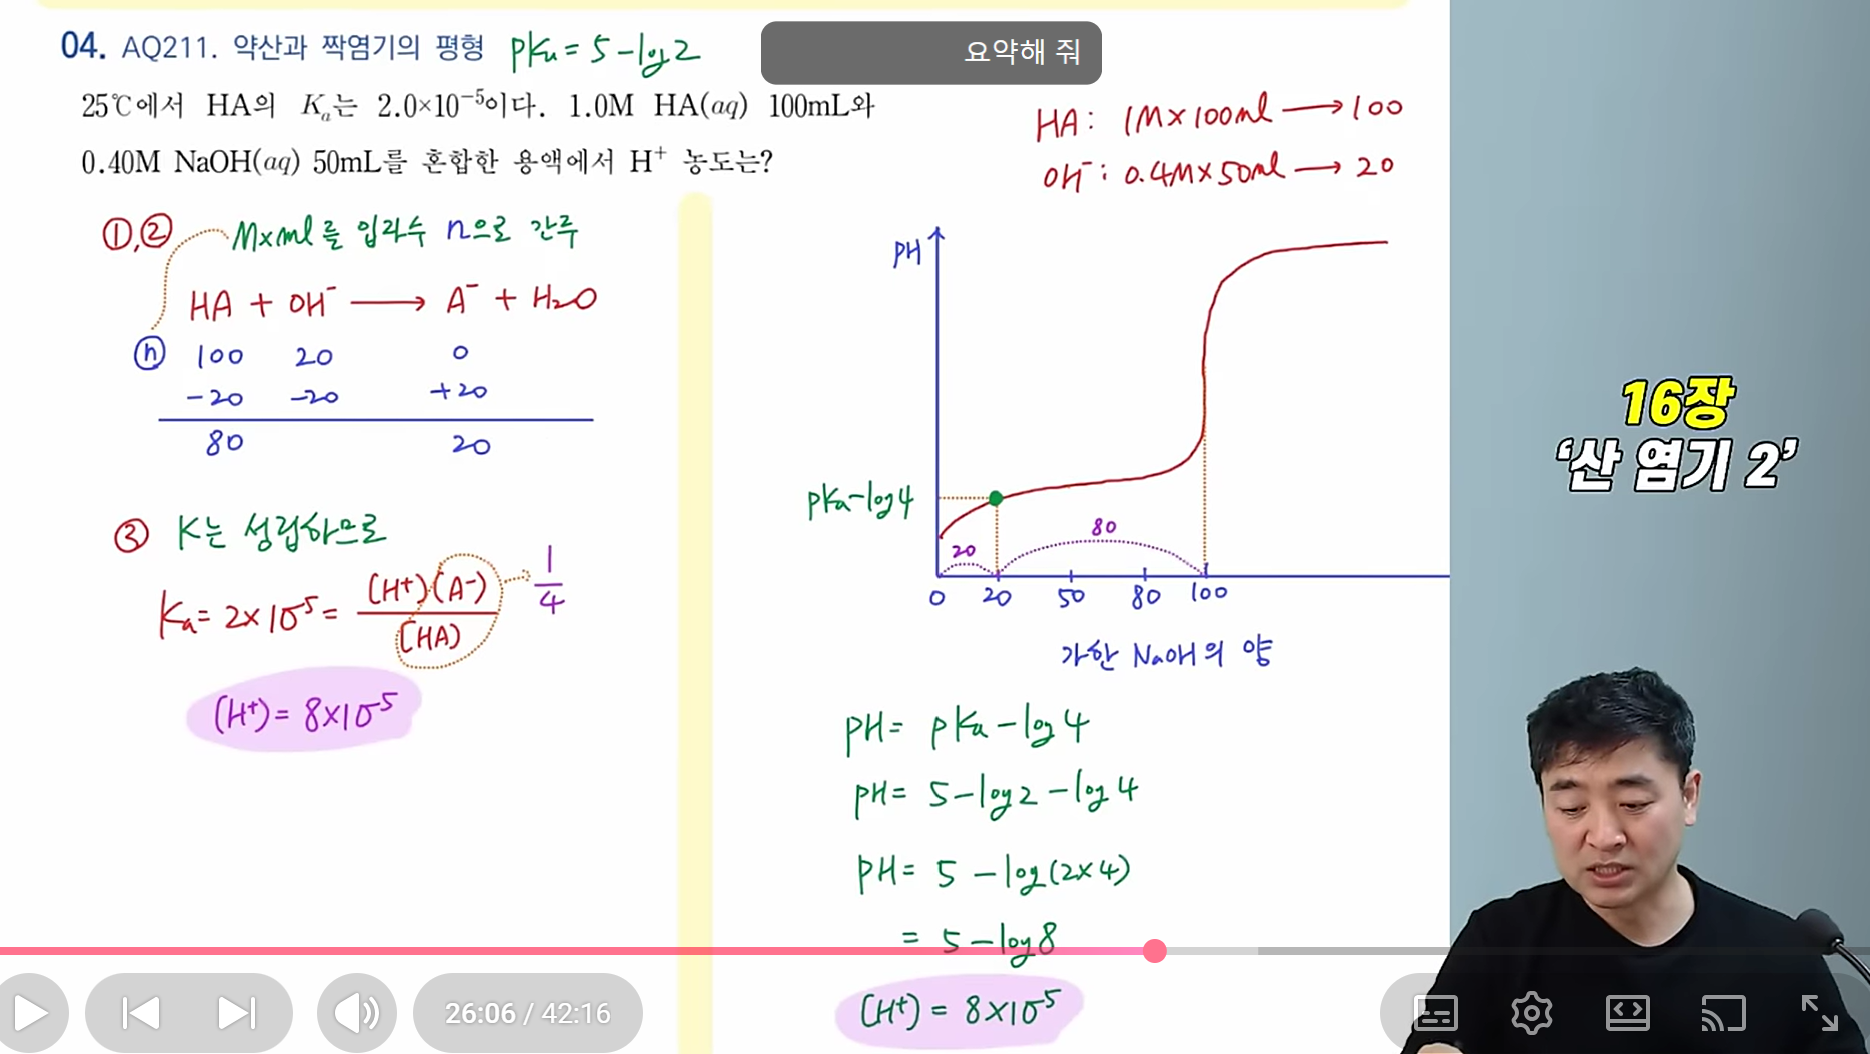 04. AQ211. 약산과 짝염기의 평형 pKa = 5 - log2
요약해 줘
25℃에서 HA의 Ka는 2.0×10⁻⁵이다. 1.0M HA(aq) 100mL와
0.40M NaOH(aq) 50mL를 혼합한 용액에서 H⁺ 농도는?
HA: 1M×100ml → 100
OH⁻: 0.4M×50ml → 20
①,② M×ml를 입자수 n으로 간주
HA + OH⁻ → A⁻ + H₂O
ⓝ 100 20 0
-20 -20 +20
80 20
③ K는 성립하므로
Ka = 2×10⁻⁵ = [H⁺][A⁻] / [HA]
1/4
[H⁺] = 8×10⁻⁵
PH
pKa-log4
20 80
0 20 50 80 100
가한 NaOH의 양
PH = pKa - log4
PH = 5 - log2 - log4
PH = 5 - log(2×4)
= 5 - log8
[H⁺] = 8×10⁻⁵
16장
'산 염기 2'
26:06 / 42:16